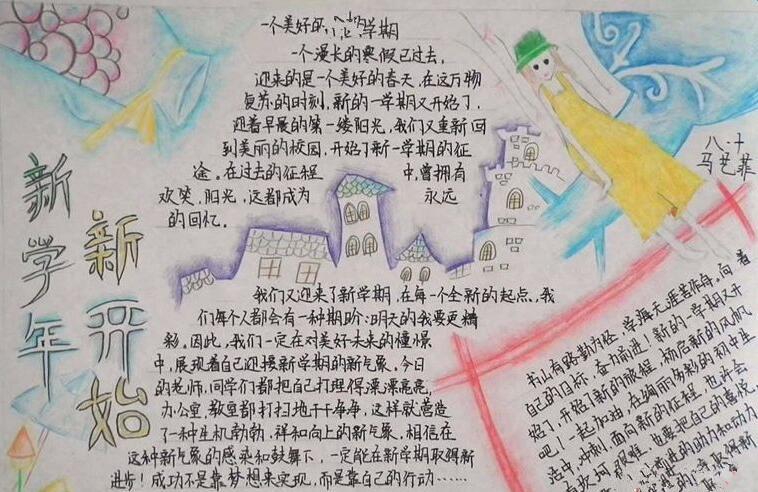 新学年
新开始
一个美好的 学期
一个漫长的寒假已过去，
迎来的是一个美好的春天，在这万物
复苏的时刻，新的一学期又开始了，
迎着早晨的第一缕阳光，我们又重新回
到美丽的校园，开始了新一学期的征
途。在过去的征程中，曾拥有
欢笑，阳光，这都成为永远
的回忆。
八、十
马艺菲
我们又迎来了新学期，在每一个全新的起点，我
们每个人都会有一种期盼：明天的我要更精
彩，因此，我们一定在对美好未来的憧憬
中，展现着自己迎接新学期的新气象，今日
的老师，同学们都把自己打理得漂漂亮亮，
力公室，教室都打扫地干干净净，这样就营造
了一种生机勃勃，祥和向上的新气象，相信在
这种新气象的感染和鼓舞下，一定能在新学期取得新
进步！成功不是靠梦想来实现，而是靠自己的行动……
书山有路勤为径，学海无涯苦作舟。向着
自己的目标，奋力前进！新的一学期又开
始了，开始了新的旅程，扬启新的风帆
吧！一起加油，在绚丽多彩的初中生
活中，冲刺，面向新的征程，也许会
有坎坷，艰难，也要把自己的喜悦，
的助力和动力
取得新